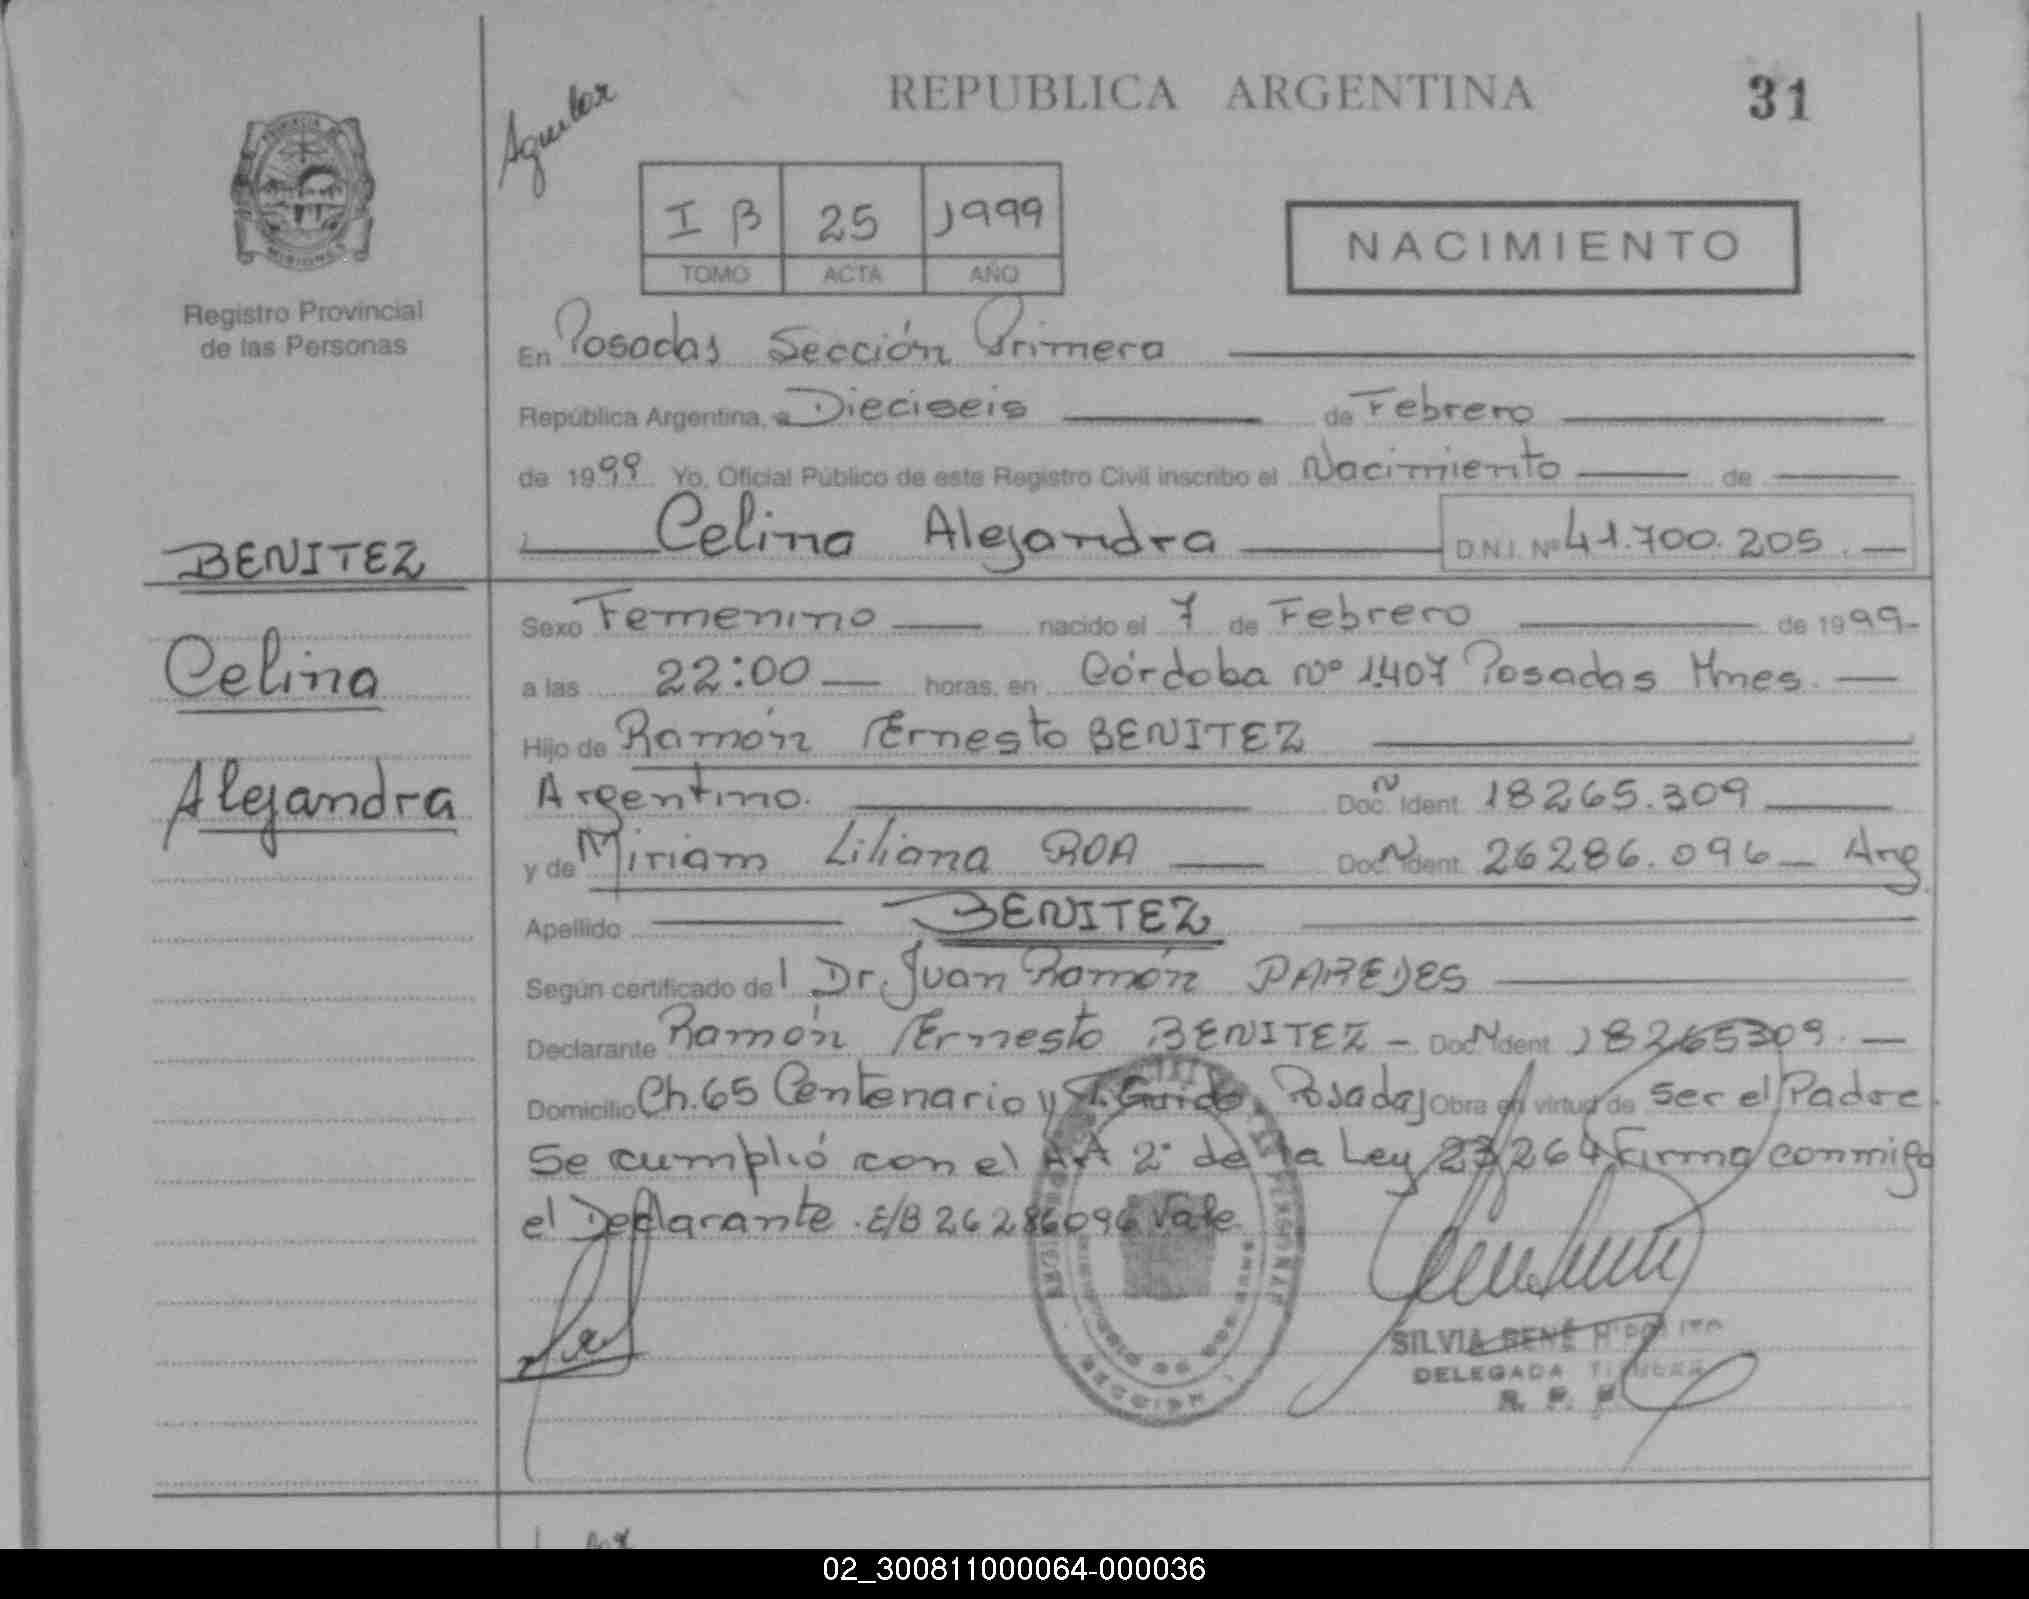 REPUBLICA ARGENTINA
31
Aguilar
PROVINCIA DE
MISIONES
Registro Provincial
de las Personas
I B 25 1999
TOMO ACTA AÑO
NACIMIENTO
En Posadas Sección Primera
República Argentina, a Dieciseis de Febrero
de 1999 Yo, Oficial Público de este Registro Civil inscribo el Nacimiento de
Celina Alejandra D.N.I. Nº 41.700.205.
BENITEZ
Celina
Alejandra
Sexo Femenino nacido el 7 de Febrero de 1999-
a las 22:00 horas, en Córdoba Nº 1407 Posadas Mnes.
Hijo de Ramón Ernesto BENITEZ
Argentino. Doc. N Ident. 18265.309
y de Miriam Liliana ROA Doc. N Ident. 26286.096 Arg
Apellido BENITEZ
Según certificado del Dr. Juan Ramón PAREDES
Declarante Ramón Ernesto BENITEZ - Doc. N Ident. 18265309.
Domicilio Ch. 65 Centenario y T. Guido Posadas Obra en virtud de ser el Padre.
Se cumplió con el 2º de la Ley 23264 Firma conmigo
el Declarante. E/B 26286096 Vale
SILVIA RENÉ
DELEGADA TITULAR
R. P. P.
SECCION 1
02_300811000064-000036